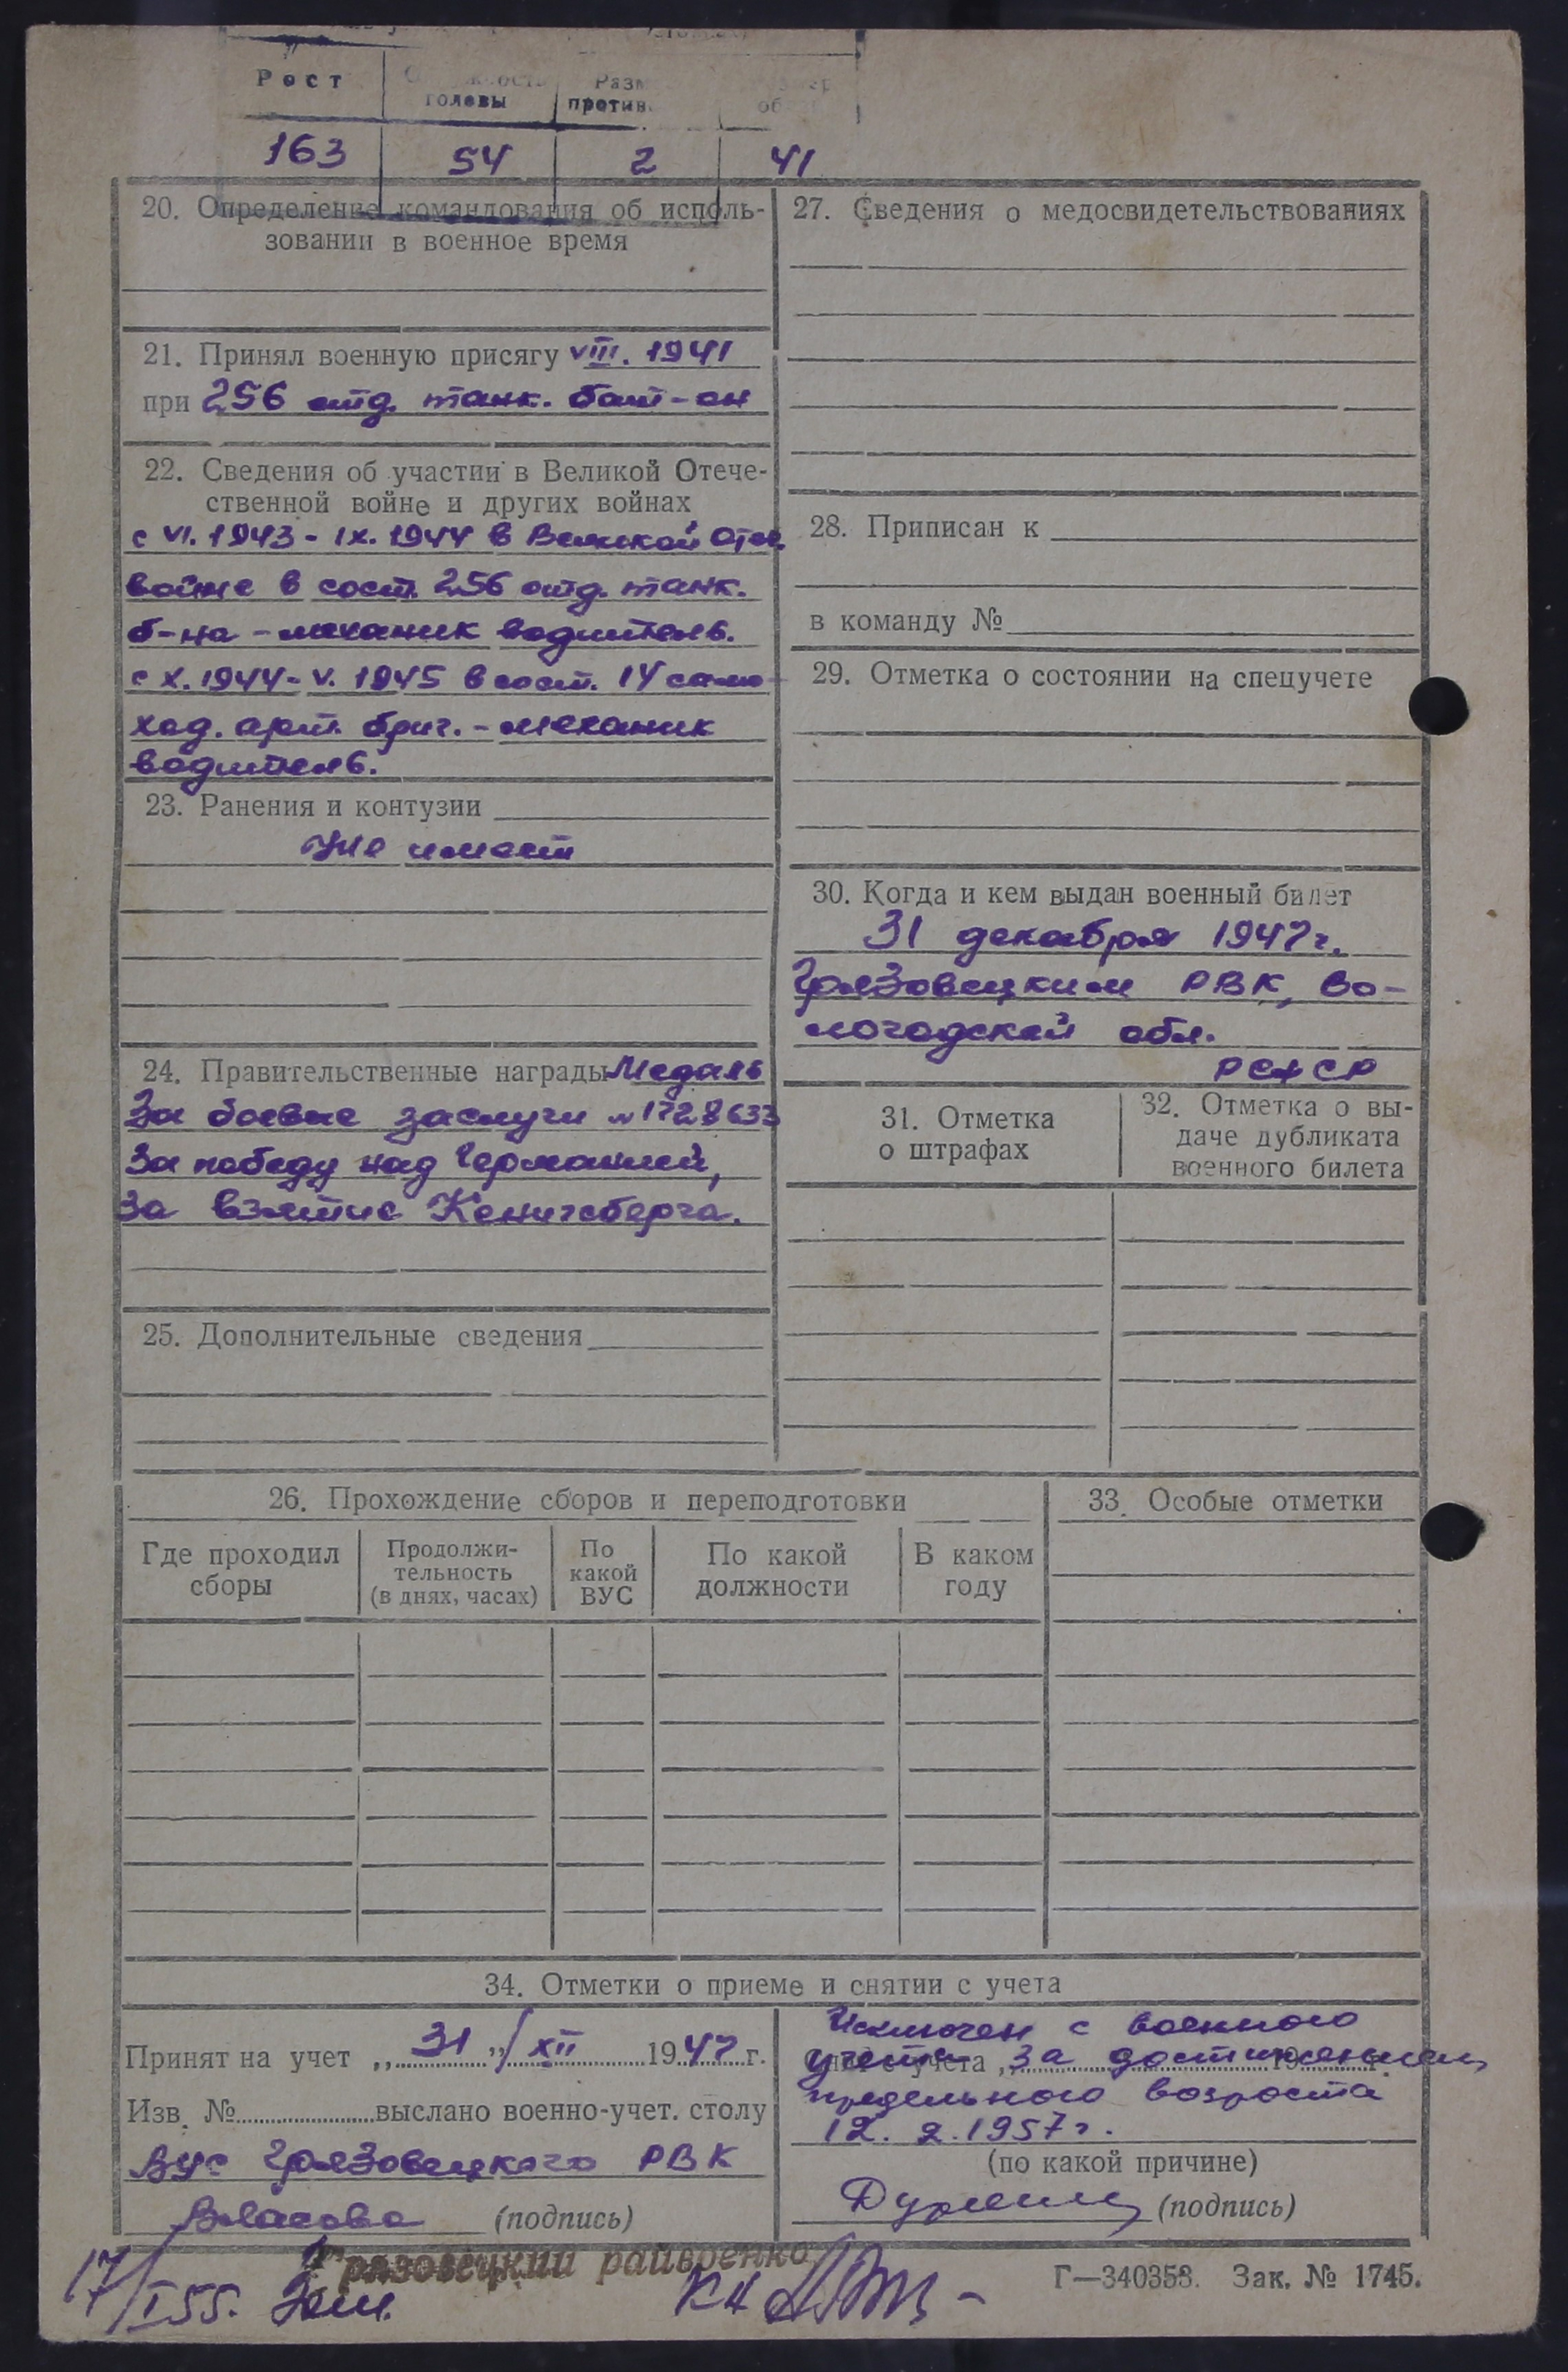 Рост
головы
против
163 54 2 41
20. Определение командования об исполь-
зовании в военное время
21. Принял военную присягу VIII. 1941
при 256 отд. танк. бат-он
22. Сведения об участии в Великой Отече-
ственной войне и других войнах
с VI. 1943 - IX. 1944 в Великой Отеч.
войне в сост. 256 отд. танк.
б-на - механик водитель.
с X. 1944 - V. 1945 в сост. 14 само
ход. арт. бриг. - механик
водитель.
23. Ранения и контузии
Не имеет
24. Правительственные награды Медаль
За боевые заслуги № 1728633
За победу над Германией,
За взятие Кенигсберга.
25. Дополнительные сведения
27. Сведения о медосвидетельствованиях
28. Приписан к
в команду №
29. Отметка о состоянии на спецучете
30. Когда и кем выдан военный билет
31 декабря 1947 г.
Грязовецким РВК, Во-
логодской обл.
РСФСР
31. Отметка
о штрафах
32. Отметка о вы-
даче дубликата
военного билета
26. Прохождение сборов и переподготовки
Где проходил
сборы
Продолжи-
тельность
(в днях, часах)
По
какой
ВУС
По какой
должности
В каком
году
33. Особые отметки
34. Отметки о приеме и снятии с учета
Принят на учет „31“ XII 1947 г.
Изв. № выслано военно-учет. столу
ВУС Грязовецкого РВК
Власова (подпись)
Исключен с военного
учета за достижением
предельного возраста
12. 2. 1957 г.
(по какой причине)
(подпись)
Грязовецкий
17/I 55.
Г—340358. Зак. № 1745.